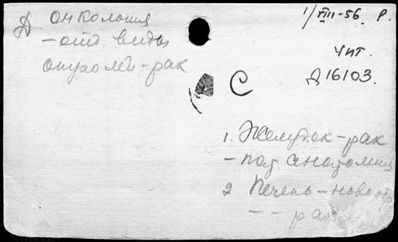 Д онкология
- отд. виды
опухолей - рак
1/VIII-56 р.
Чит.
Д16103.
С
1. Желудок - рак
- пат анатомия
2 Печень - ново
- - рак